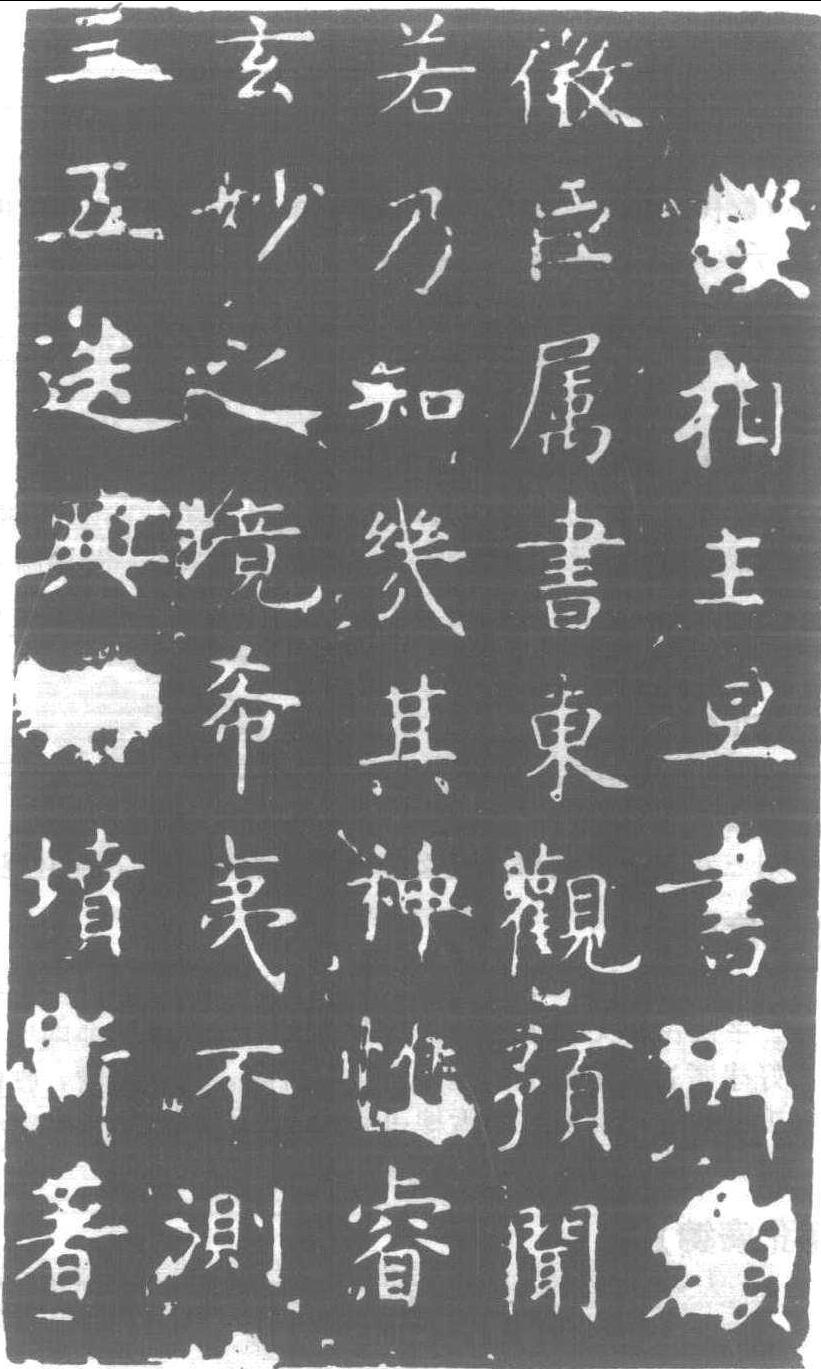 護相王旦書碑額
微臣属書東觀預聞
若乃知幾其神惟睿
玄妙之境希夷不測
三五迭興墳斯著